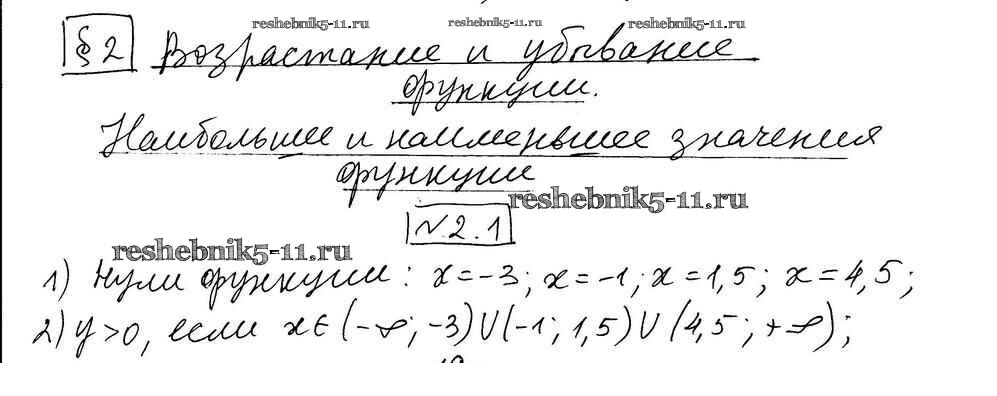 reshebnik5-11.ru reshebnik5-11.ru reshebnik5-11.ru
§ 2 Возрастание и убывание
функции.
Наибольшее и наименьшее значения
функции
reshebnik5-11.ru
№2.1
reshebnik5-11.ru
1) Нули функции: x=-3; x=-1; x=1,5; x=4,5;
2) y>0, если x∈(-∞; -3)∪(-1; 1,5)∪(4,5; +∞);